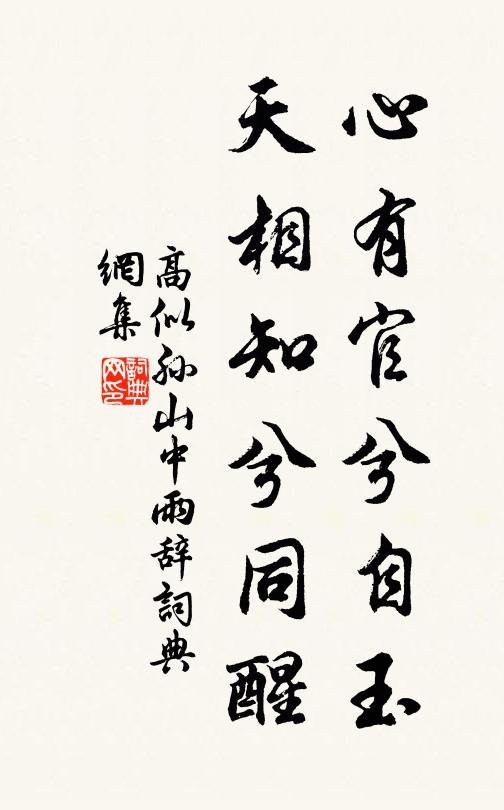 心有官兮自玉
天相知兮同醒
高似孙山中雨辞詞典
網集
詞典
网印